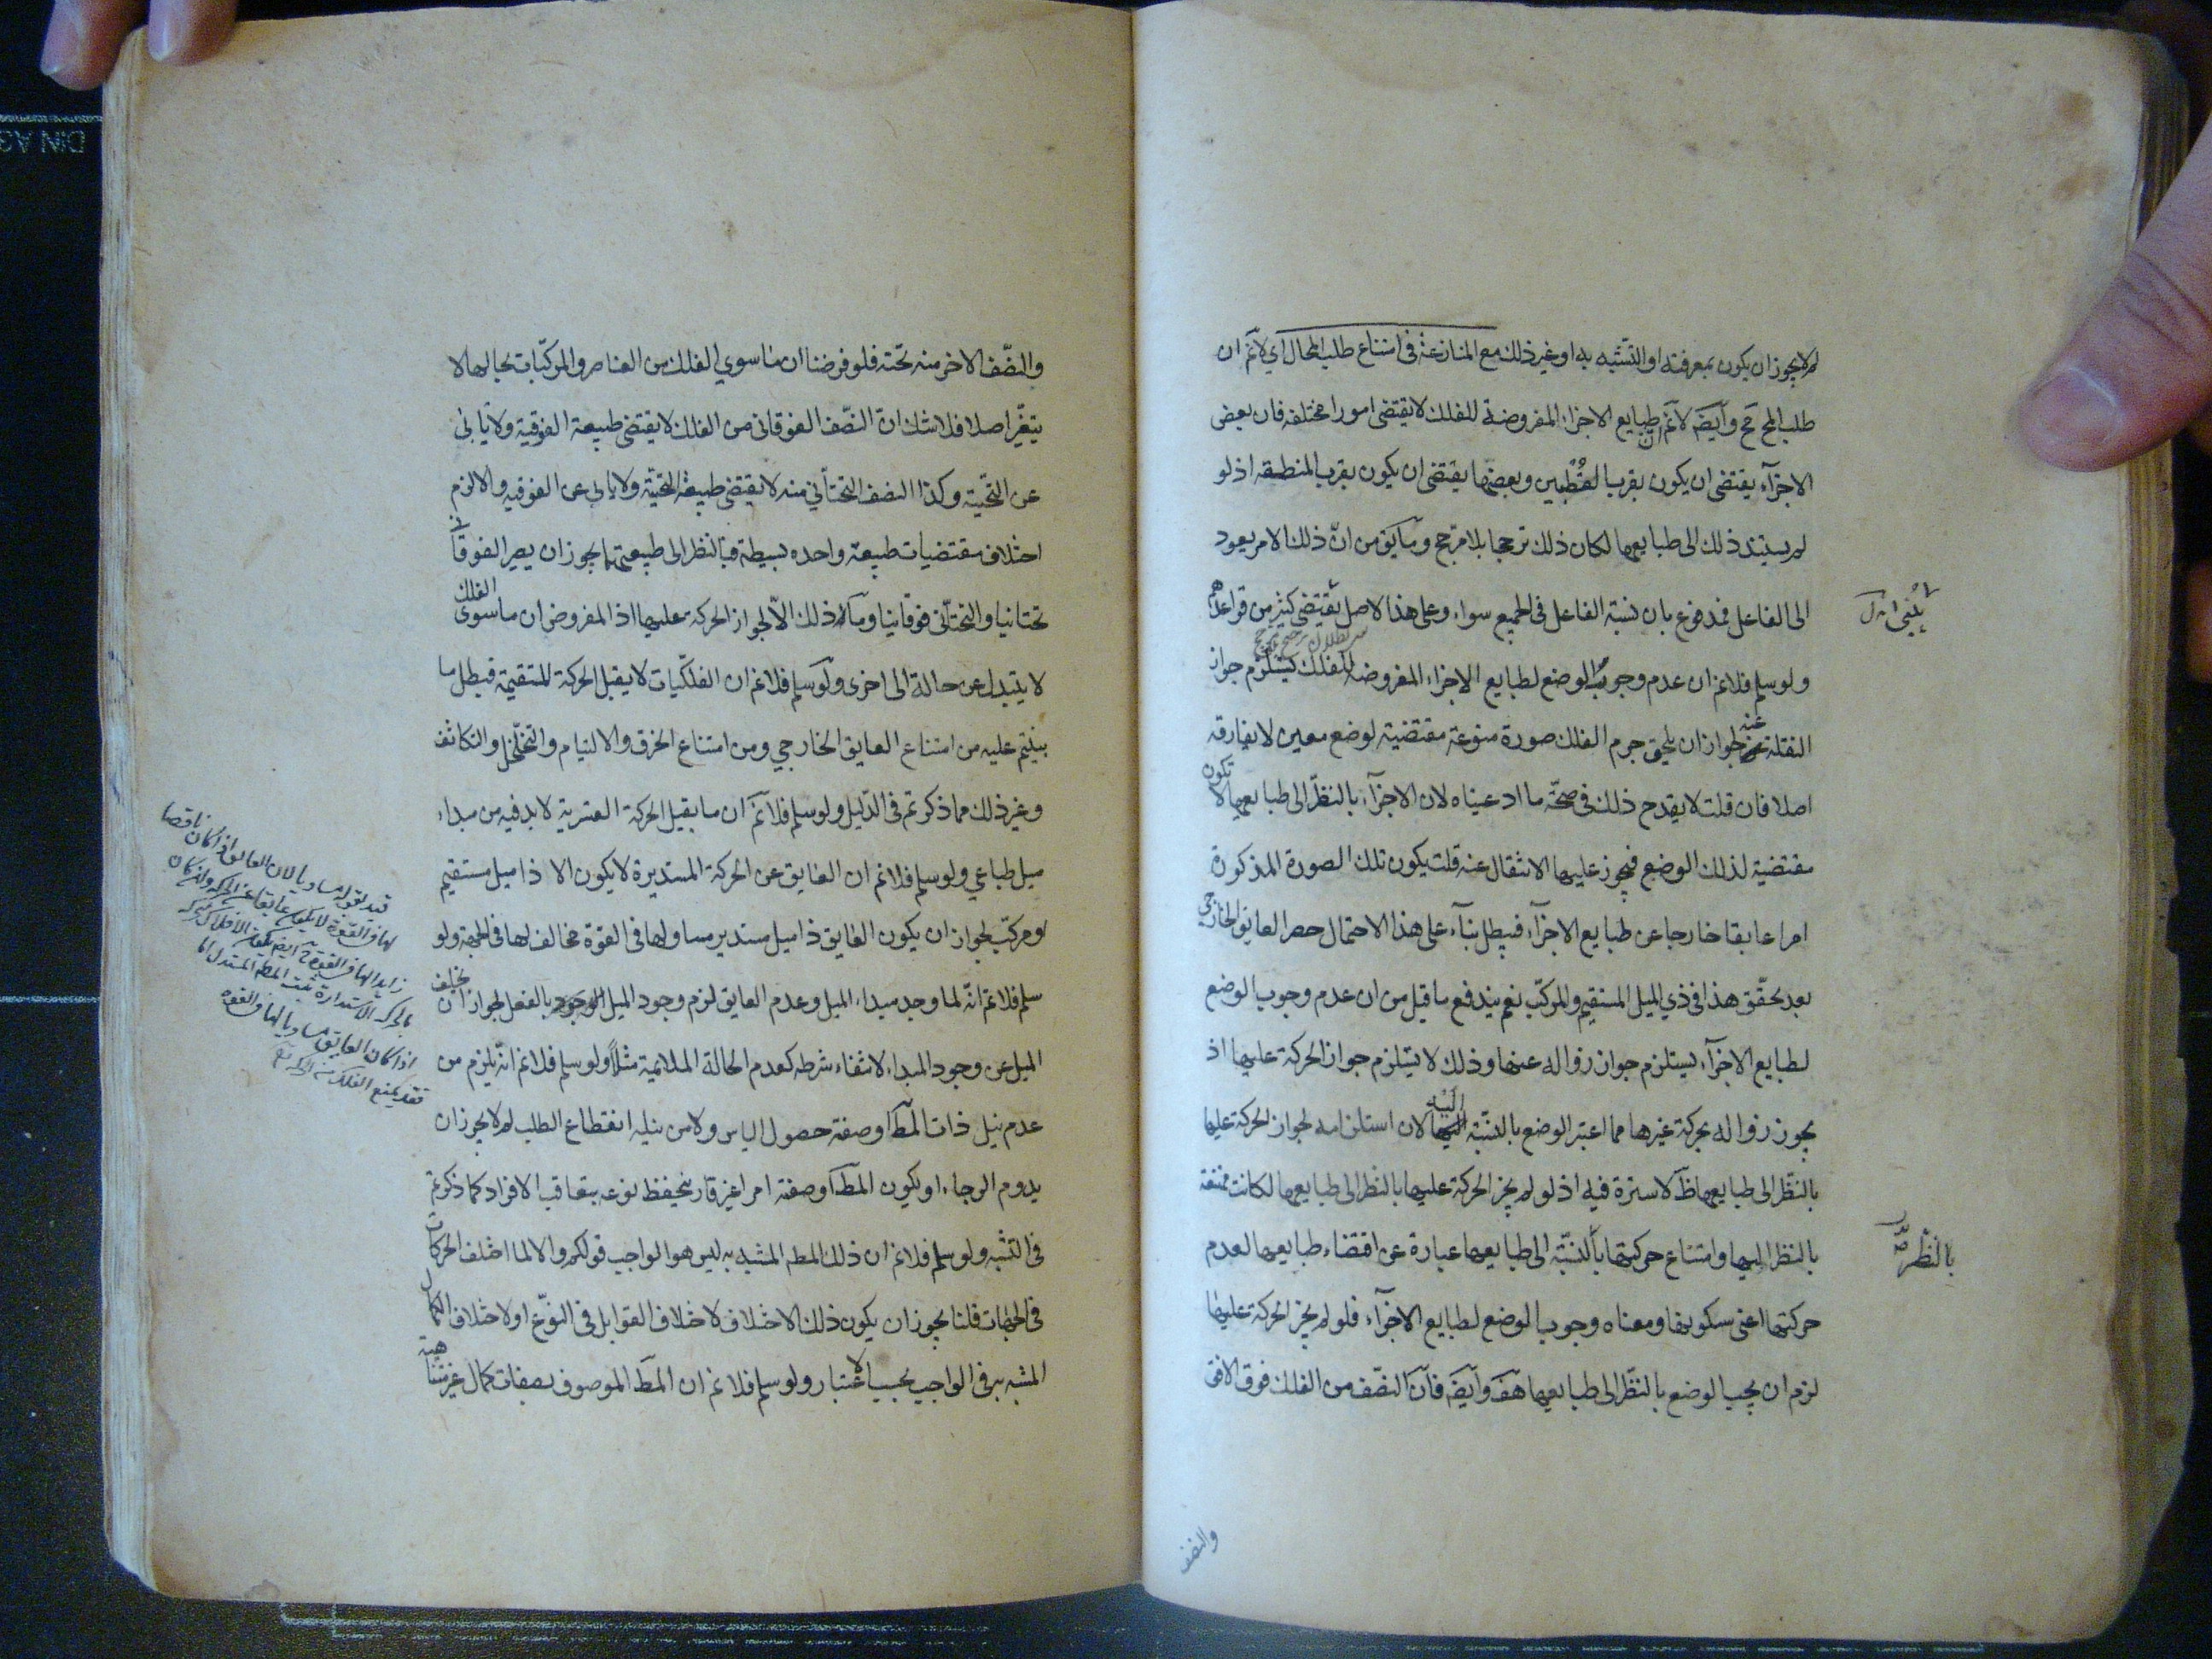 لم لا يجوز ان يكون بمعرفته او التشبه به او غير ذلك مع المنازعة فى امتناع طلب المحال اي لا نم ان
طلب المح مح وايضا لا نم ان طبايع الاجزاء المفروضة للفلك لا يقتضى امورا مختلفه فان بعض
الاجزآء يقتضى ان يكون بقرب القطبين وبعضها يقتضى ان يكون بقرب المنطقه اذ لو
لم يستند ذلك الى طبايعها لكان ذلك ترجيحا بلا مرجح وما يق من انّ ذلك الامر يعود
الى الفاعل فمدفوع بان نسبة الفاعل فى الجميع سواء وعلى هذا الاصل يقتضى كثير من قواعدهم
ولو سلم فلا نم ان عدم وجوب الوضع لطبايع الاجزاء المفروضة للفلك يستلزم جواز
النقلة عنه لجواز ان يلحق جرم الفلك صورة منوعة مقتضية لوضع معين لا يفارقه
اصلا فان قلت لا يقدح ذلك فى صحّة ما ادعيناه لان الاجزآء بالنظر الى طبايعها لا تكون
مقتضية لذلك الوضع فيجوز عليها الانتقال عنه قلت يكون تلك الصورة المذكورة
امرا عايقا خارجا عن طبايع الاجزآء فيبطل بنآء على هذا الاحتمال حصر العايق الخارجي
بعد تحقّق هذا فى ذي الميل المستقيم والمركّب نعم يندفع ما قيل من ان عدم وجوب الوضع
لطبايع الاجزآء يستلزم جواز زواله عنها وذلك لا يستلزم جواز الحركة عليها اذ
يجوز زواله بحركة غيرها مما اعتبر الوضع بالنسبة اليه لان استلزامه لجواز الحركة عليها
بالنظر الى طبايعها ظ لا سترة فيه اذ لو لم يجز الحركة عليها بالنظر الى طبايعها لكانت ممتنعة
بالنظر اليها وامتناع حركتها بالنسبة الى طبايعها عبارة عن اقتضاء طبايعها لعدم
حركتها اعنى سكونها ومعناه وجوب الوضع لطبايع الاجزآء فلو لم يجز الحركة عليها
لزم ان يجب الوضع بالنظر الى طبايعها هف وايضا فانّ النصف من الفلك فوق الافق
بالنظر صح
والنصف
والنصّف الاخر منه تحته فلو فرضنا ان ما سوي الفلك من العناصر والمركّبات بحالها لا
يتغيّر اصلا فلا شك انّ النصّف الفوقانى من الفلك لا يقتضى طبيعة الفوقية ولا يابى
عن التحتية وكذا النصف التحتاني منه لا يقتضى طبيعة التحتية ولا يابى عن الفوقيه والا لزم
اختلاف مقتضيات طبيعة واحده بسيطة فبالنظر الى طبيعتهما يجوز ان يصير الفوقانى
تحتانيا والتحتانى فوقانيا وما ذلك الّا لجواز الحركة عليها اذ المفروض ان ما سوى الفلك
لا يتبدل عن حالة الى اخرى ولو سلم فلا نم ان الفلكيات لا يقبل الحركة المستقيمة فيبطل ما
بنيتم عليه من امتناع العايق الخارجي ومن امتناع الخرق والالتيام والتخلخل والتكاثف
وغير ذلك مما ذكرتم فى الدّليل ولو سلم فلا نم ان ما يقبل الحركة القسرية لا بد فيه من مبداء
ميل طباعي ولو سلم فلا نم ان العايق عن الحركة المستديرة لا يكون الا ذا ميل مستقيم
او مركّب لجواز ان يكون العايق ذا ميل مستدير مساو لها فى القوّة مخالف لها فى الجهة ولو
سلم فلا نم انّه لما وجد مبداء الميل وعدم العايق لزم وجود الميل بالفعل لجواز ان يخلف
الميل عن وجود المبداء لانتفاء شرطه كعدم الحالة الملايمة مثلاً ولو سلم فلا نم انّه يلزم من
عدم نيل ذات المط او صفته حصول الياس ولا من نيله انقطاع الطلب لم لا يجوز ان
يدوم الرجاء او يكون المط او صفته امرا غير قار ينحفظ نوعه بتعاقب الافراد كما ذكرتم
فى التشبه ولو سلم فلا نم ان ذلك المط المشبه به ليس هو الواجب قولكم والا لما اختلف الحركات
فى الجهات قلنا يجوز ان يكون ذلك الاختلاف لاختلاف القوابل فى النوع او لاختلاف الكمال
المشبه به فى الواجب بحسب الاعتبار ولو سلم فلا نم ان المط الموصوف بصفات كمال غير متناهية
قيد بقوله مساويا لان العايق اذا كان ناقصا
لها فى القوة لا يكون عايقا عن الحركه وان كان
زايدا لها فى القوة
اذا كان العايق مساويا لها فى القوة
فقد يمنع الفلك من الحركة